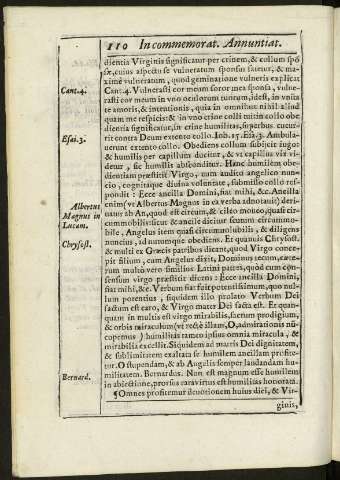 110 In commemorat. Annuntiat.
dientia Virginis significatur per crinem, & collum spõ
sæ, cuius aspectu se vulneratum sponsus fatetur, & ma-
ximè vulneratum, quod geminatione vulneris explicat
Cant.4. Vulnerasti cor meum soror mea sponsa, vulne-
rasti cor meum in vno oculorum tuorum, idest, in vnita
te amoris, & intentionis, quia in omnibus nihil aliud
quam me respicis: & in vno crine colli tui. In collo obe
dientia significatur, in crine humilitas, superbus cucur-
rit contra Deum extento collo. Iob. 15. Esa. 3. Ambula-
uerunt extento collo. Obediens collum subijcit iugo
& humilis per capillum dicitur, & vt capillus vix vi
detur, sic humilis absconditur. Hanc humilem obe-
dientiam præstitit Virgo, cum audito angelico nun-
cio, cognitaque diuina voluntate, submisso collo res-
pondit: Ecce ancilla Domini, fiat mihi, &c. Ancilla
enim (vt Albertus Magnus in ea verba adnotauit) deri-
natur ab An, quod est circum, & cileo moueo, quasi cir-
cummobilis
bile, Angelus item quasi circumuolubilis, & diligens
noncius, id nutumque obediens. Et quamuis Chrysost.
& multi ex Græcis patribus dicant, quod Virgo conce-
pit filium, cum Angelus dixit, Dominus tecum, cæte-
rum multo vero similius Latini patres, quòd cum con-
sensum virgo præstitit dicens: Ecce ancilla Domini,
fiat mihi, &c. Verbum fiat fuit potentissimum, quo nul-
lum potentius, siquidem illo prolato Verbum Dei
factum est caro, & Virgo mater Dei facta est. Et quan-
quam in multis est virgo mirabilis, factum prodigium,
& orbis miraculum (vt rectè illam, O, admirationis nũ-
cupemus) humilitas tamen ipsius omnia miracula, &
mirabilia excellit. Siquidem ad matris Dei dignitatem,
& sublimitatem exaltata se humilem ancillam profite-
tur. O stupendam, & ab Angelis semper laudandam hu-
militatem. Bernardus. Non est magnum esse humilem
in abiectione, prorsus rara virtus est humilitas honorata.
¶Omnes profitemur deuotionem huius diei, & Vir-
ginis,
Cant.4.
Esai.3.
Albertus
Magnus in
Lucam.
Chrysost.
Bernard.